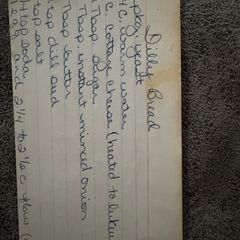 Dilly Bread
pkg yeast
4 c. warm water
c. cottage cheese (heated to lukew
Tbsp. sugar
Tbsp. instant minced onion
Tbsp butter
tsp dill seed
tsp salt
1/4 tsp soda
egg and 2 1/4 to 2 1/2 c flour (